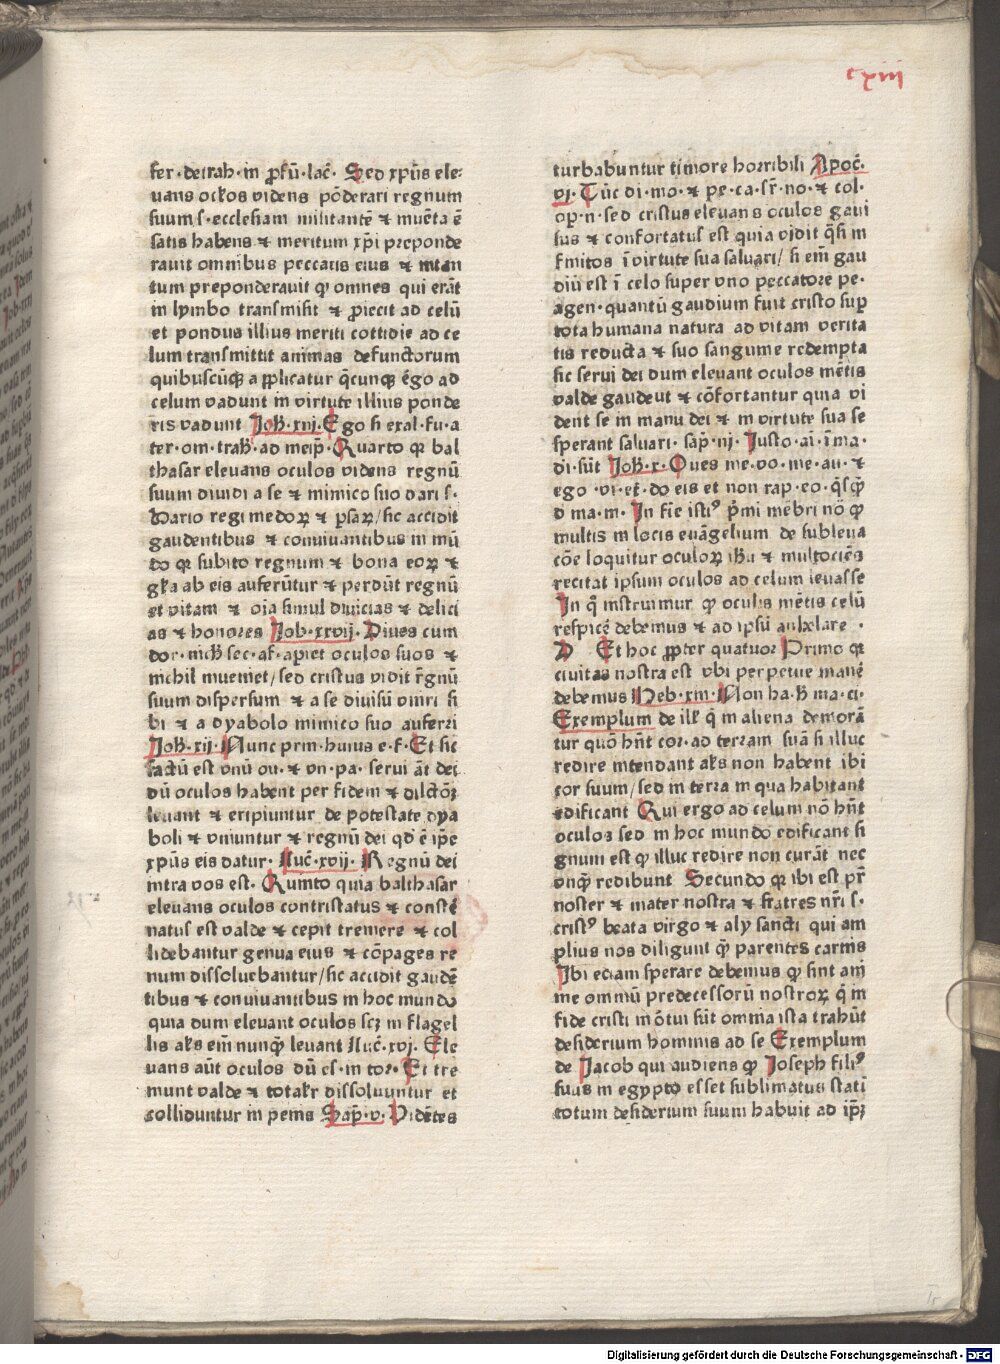 cxiii
fer·detrah·in ꝓfū·lac̄· Sed xp̄us ele⸗
vans oc̄los videns pōderari regnum
suum s·ecclesiam militantē ⁊ inuēta ē
satis habens ⁊ meritum xp̄i preponde
rauit omnibus peccatis eius ⁊ intan
tum preponderauit ꝙ omnes qui erāt
in lymbo transmisit ⁊ ꝓiecit ad celū
et pondus illius meriti cottidie ad ce
lum transmittit animas defunctorum
quibuscūqꝫ applicatur q̄cunqꝫ ēgo ad
celum vadunt in virtute illius ponde
ris vadunt Joh̄·xij·Ego si exal·fu·a
ter·om·trah̄·ad meip̄· Quarto qꝛ bal
thasar eleuans oculos videns regnū
suum diuidi a se ⁊ inimico suo dari s·
Dario regi medoꝝ ⁊ ꝑsaꝝ/sic accidit
gaudentibus ⁊ conuiuantibus in mū
do qꝛ subito regnum ⁊ bona eoꝝ ⁊
gl̄ia ab eis auferūtur ⁊ perdūt regnū
et vitam ⁊ oīa simul diuicias ⁊ delici
as ⁊ honores Job·xxvij· Diues cum
dor·nich̄ sec·af·apiet oculos suos ⁊
nichil inueniet/sed cristus vidit r̄gnū
suum dispersum ⁊ a se diuisū vniri si
bi ⁊ a dyabolo inimico suo auferri
Joh̄·xij·Nunc prin·huius e·f·Et sic
factū est vnū ou·⁊ vn·pa·serui āt dei
dū oculos habent per fidem ⁊ dilctōꝫ
leuant ⁊ eripiuntur de potestate dya
boli ⁊ vniuntur ⁊ regnū dei qd̄ ē ip̄e
xp̄us eis datur· Luc̄·xvij· Regnū dei
intra vos est· Quinto quia balthasar
eleuans oculos contristatus ⁊ constē
natus est valde ⁊ cepit tremere ⁊ col
lidebantur genua eius ⁊ cōpages re
num dissoluebantur/sic accidit gaudē
tibus ⁊ conuiuantibus in hoc mundo
quia dum eleuant oculos scꝫ in flagel
lis al̄s em̄ nunqꝫ leuant Luc̄·xvj· Ele
uans aūt oculos dū es·in tor· Et tre
munt valde ⁊ totalr̄ dissoluuntur et
colliduntur in penis Sap̄·v· Vidētes
turbabuntur timore horribili Apoc̄·
vj· Tūc di·mo·⁊ pe·ca·sr̄·no·⁊ col·
op·n·sed cristus eleuans oculos gaui
sus ⁊ confortatus est quia vidit q̄si in
fīnitos ī virtute sua saluari/ si em̄ gau
diū est ī celo super vno peccatore pe·
agen·quantū gaudium fuit cristo suꝑ
tota humana natura ad vitam verita
tis reducta ⁊ suo sanguine redempta
sic serui dei dum eleuant oculos mētis
valde gaudeut ⁊ cōfortantur quia vi
dent se in manu dei ⁊ in virtute sua se
sperant saluari· sap̄·iij· Justo·ai·ī ma·
di·sūt Joh̄·x·Oues me·vo·me·au·⁊
ego ·vi·ef·do eis et non rap·eo·q̄sqꝫ
d̄ ma·m· In fīe isti⁹ p̄mi mēbri nō ꝙ
multis in locis euāgelium de subleua
cōe loquitur oculoꝝ ih̄u ⁊ multociēs
recitat ipsum oculos ad celum leuasse
In q̄ instruimur ꝙ oculis mētis celū
respicē debemus ⁊ ad ipsū anhelare ·
D Et hoc ꝓpter quatuor Primo qꝛ
ciuitas nostra est vbi perpetue manē
debemus Heb·xiii·Non ha·h̄ ma·ci·
Exemplum de ill̄ q̄ in aliena demorā
tur quō hn̄t cor·ad terram suā si illuc
redire intendant al̄s non habent ibi
cor suum/sed in terra in qua habitant
edificant Qui ergo ad celum nō hn̄t
oculos sed in hoc mundo edificant si
gnum est ꝙ illuc redire non curāt nec
vnqꝫ redibunt Secundo qꝛ ibi est pr̄
noster ⁊ mater nostra ⁊ fratres nr̄i s·
crist⁹ beata virgo ⁊ aly sancti qui am
plius nos diligunt q̄ parentes carnis
Ibi eciam sperare debemus ꝙ sint ani
me omniū predecessorū nostroꝝ q̄ in
fide cristi mōtui sūt omnia ista trahūt
desiderium hominis ad se Exemplum
de Jacob qui audiens ꝙ Joseph fili⁹
suus in egypto esset sublimatus statī
totum desiderium suum habuit ad ip̄ꝫ
Digitalisierung gefördert durch die Deutsche Forschungsgemeinschaft - DFG